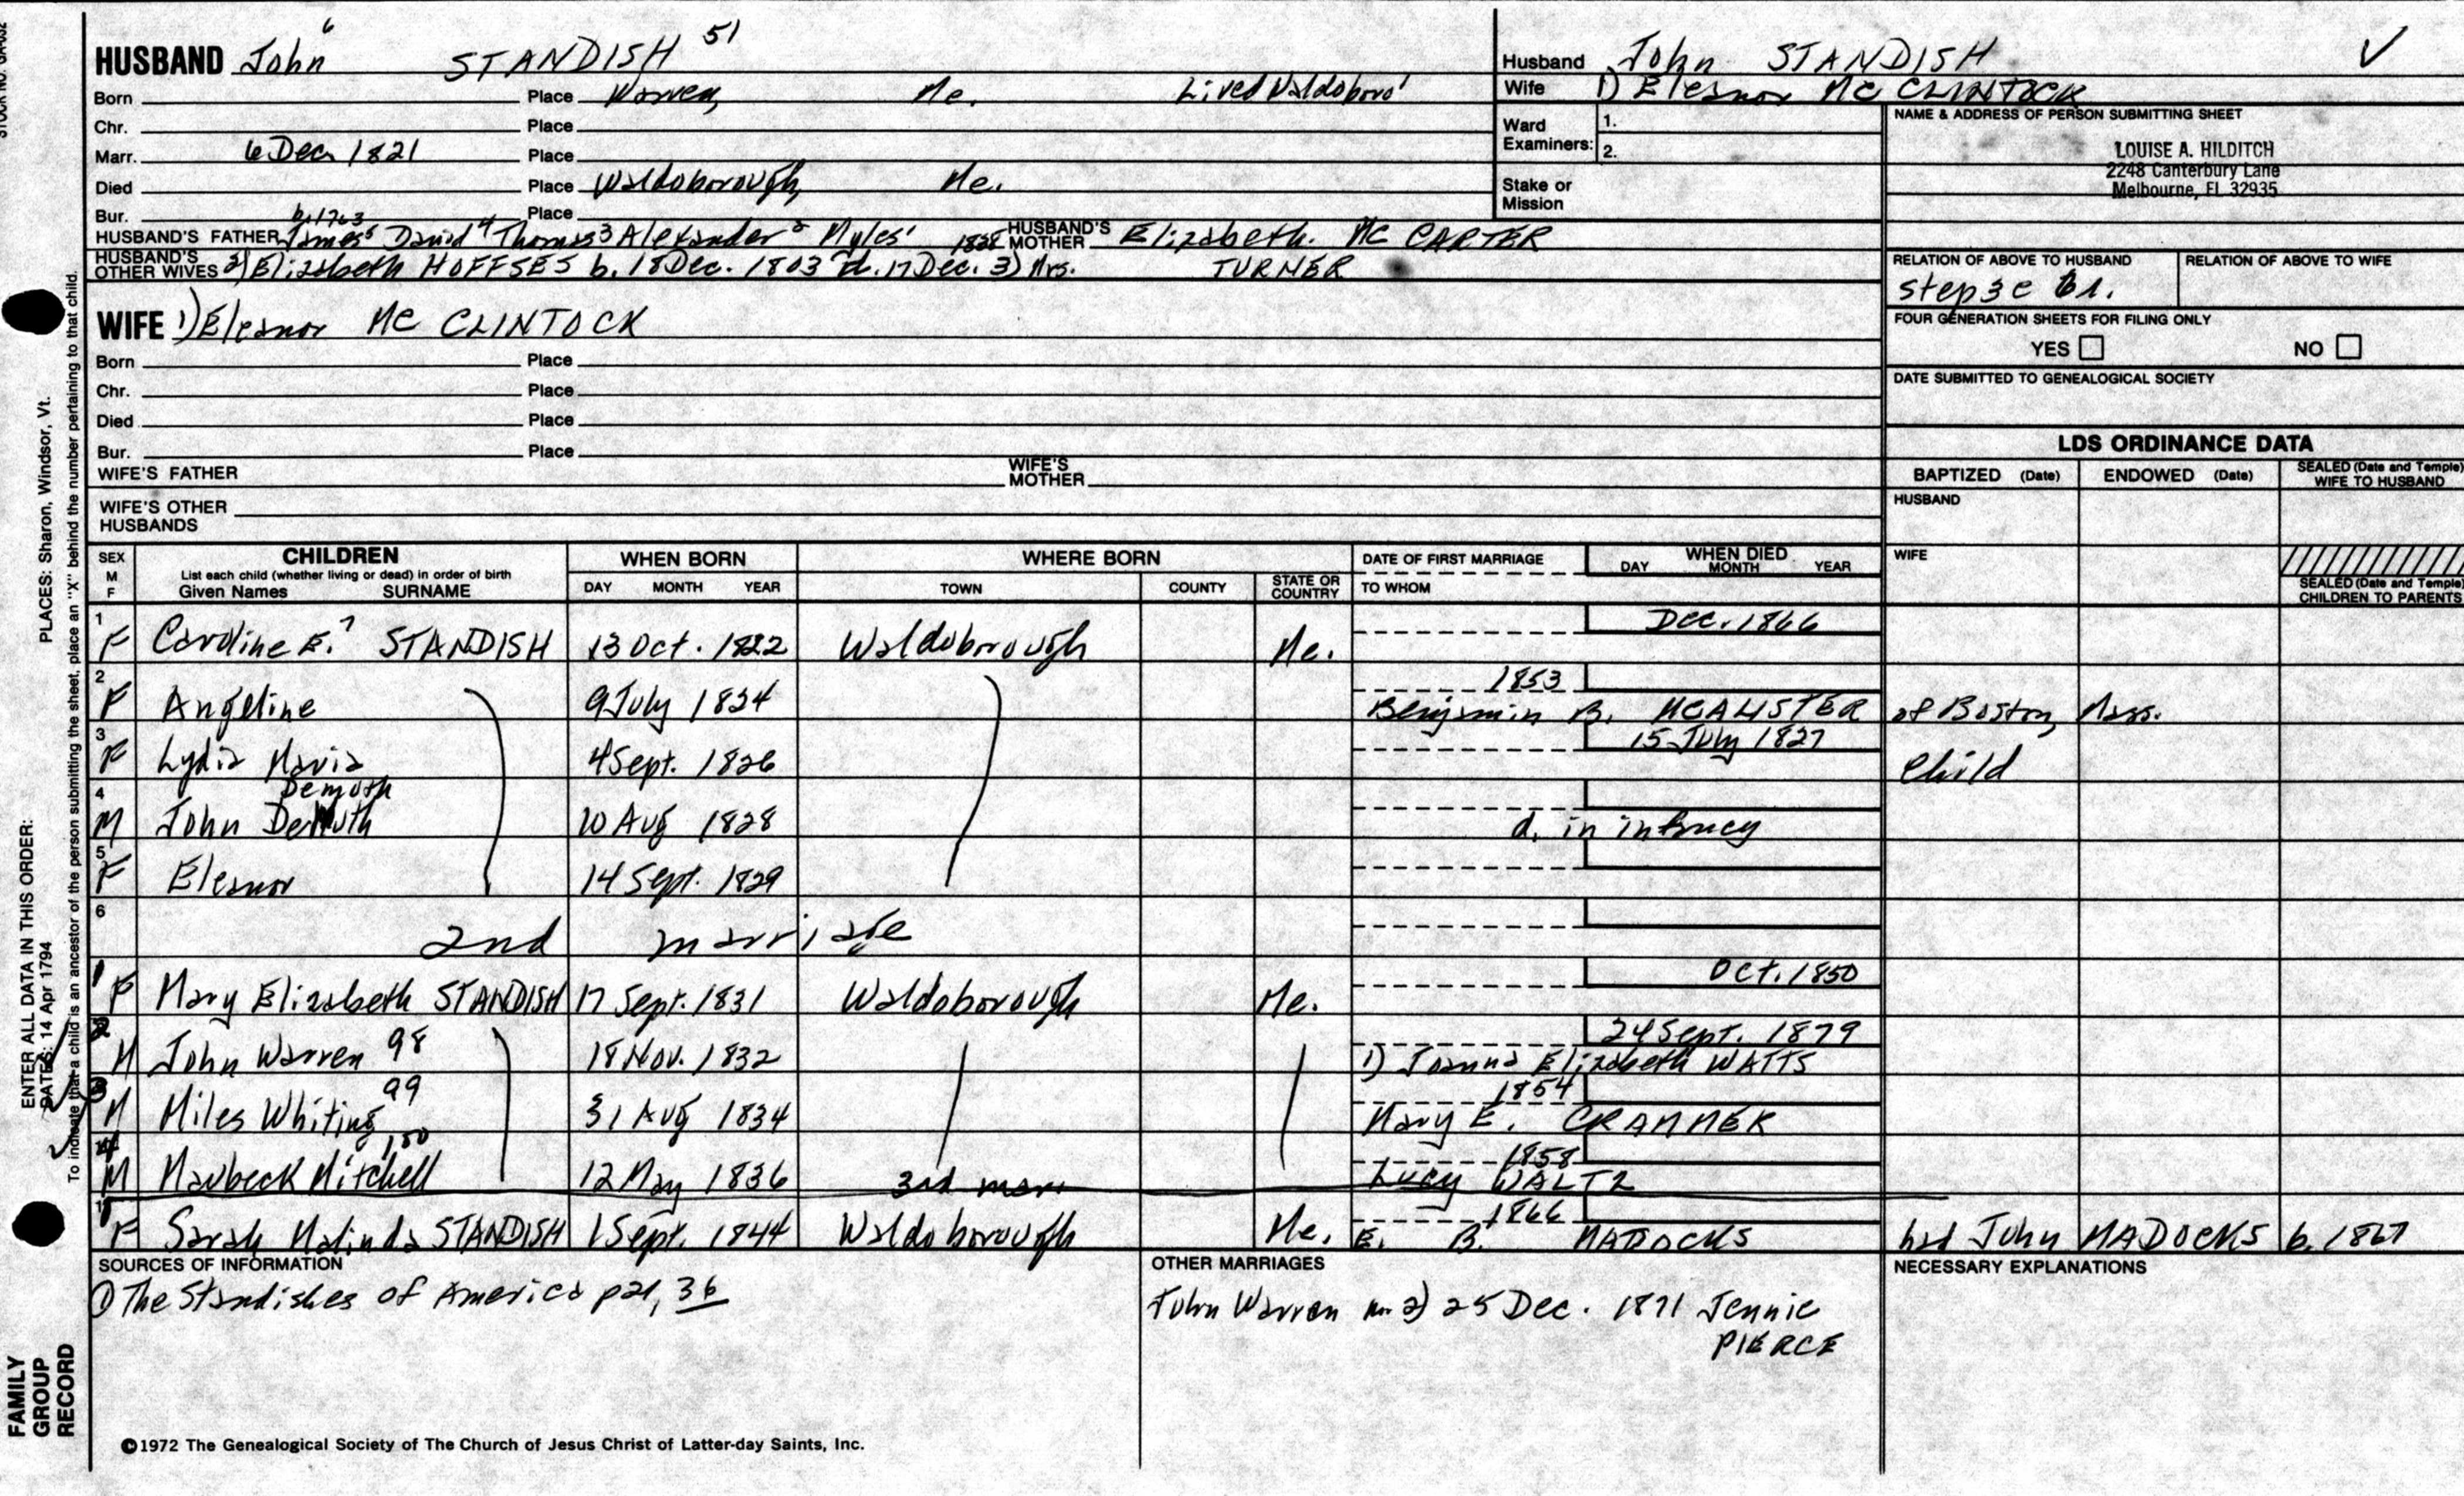 STOCK NO. GA-032
HUSBAND John 6 STANDISH 51
Born Place Warren, Me. Lived Waldoboro'
Chr. Place
Marr. 6 Dec. 1821 Place
Died Place Waldoborough, Me.
Bur. Place
b. 1763
HUSBAND'S FATHER James 5 David 4 Thomas 3 Alexander 2 Myles 1 HUSBAND'S MOTHER Elizabeth MC CARTER
1838
HUSBAND'S OTHER WIVES 2) Elizabeth HOFFSES b. 18 Dec. 1803 d. 17 Dec. 3) Mrs. TURNER
WIFE 1) Eleanor MC CLINTOCK
Born Place
Chr. Place
Died Place
Bur. Place
WIFE'S FATHER WIFE'S MOTHER
WIFE'S OTHER HUSBANDS
Husband John STANDISH
Wife 1) Eleanor MC CLINTOCK
Ward Examiners: 1.
2.
Stake or Mission
NAME & ADDRESS OF PERSON SUBMITTING SHEET
LOUISE A. HILDITCH
2248 Canterbury Lane
Melbourne, FL 32935
RELATION OF ABOVE TO HUSBAND RELATION OF ABOVE TO WIFE
step 3c
FOUR GENERATION SHEETS FOR FILING ONLY
YES NO
DATE SUBMITTED TO GENEALOGICAL SOCIETY
LDS ORDINANCE DATA
BAPTIZED (Date) ENDOWED (Date) SEALED (Date and Temple) WIFE TO HUSBAND
HUSBAND
WIFE
SEALED (Date and Temple) CHILDREN TO PARENTS
SEX M F CHILDREN WHEN BORN WHERE BORN DATE OF FIRST MARRIAGE WHEN DIED
List each child (whether living or dead) in order of birth
Given Names SURNAME DAY MONTH YEAR TOWN COUNTY STATE OR COUNTRY TO WHOM DAY MONTH YEAR
1 Dec. 1866
F Caroline E. 7 STANDISH 13 Oct. 1822 Waldoborough Me.
2 1853
F Angeline 9 July 1824 Benjamin B. MCALISTER of Boston, Mass.
3 15 July 1827
F Lydia Maria 4 Sept. 1826 Child
4 Demuth
M John Demuth 10 Aug 1828 d. in infancy
5
F Eleanor 14 Sept. 1829
6
2nd marriage
1 Oct. 1850
F Mary Elizabeth STANDISH 17 Sept. 1831 Waldoborough Me.
2 24 Sept. 1879
M John Warren 98 18 Nov. 1832 1) Joanna Elizabeth WATTS
3 99 1854
M Miles Whiting 31 Aug 1834 Mary E. CRAMMER
4 1858
M Marbeck Mitchell 12 May 1836 3rd marr Lucy WALTZ
1 1866
F Sarah Malinda STANDISH 1 Sept. 1844 Waldoborough Me. E. B. MADDOCKS had John MADOCKS b. 1867
SOURCES OF INFORMATION
① The Standishes of America p21, 36
OTHER MARRIAGES
John Warren m. 2) 25 Dec. 1871 Jennie
PIERCE
NECESSARY EXPLANATIONS
©1972 The Genealogical Society of The Church of Jesus Christ of Latter-day Saints, Inc.
ENTER ALL DATA IN THIS ORDER:
DATES: 14 Apr 1794
PLACES: Sharon, Windsor, Vt.
To indicate that a child is an ancestor of the person submitting the sheet, place an "X" behind the number pertaining to that child.
FAMILY
GROUP
RECORD